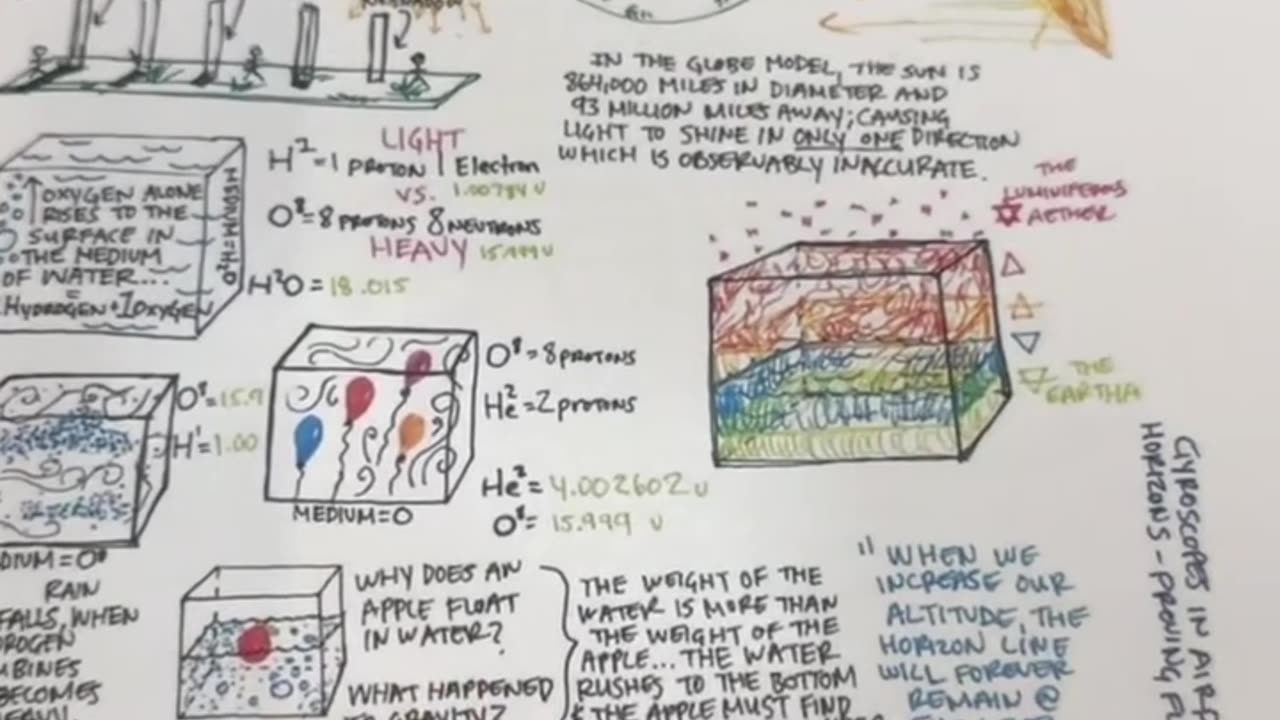 IN THE GLOBE MODEL, THE SUN IS
864,000 MILES IN DIAMETER AND
93 MILLION MILES AWAY; CAUSING
LIGHT TO SHINE IN ONLY ONE DIRECTION
WHICH IS OBSERVABLY INACCURATE.
OXYGEN ALONE
RISES TO THE
SURFACE IN
THE MEDIUM
OF WATER....
=
HYDROGEN + 1 OXYGEN
MEDIUM=H²O
LIGHT
H²=1 PROTON 1 Electron
VS. 1.00784 U
O⁸=8 PROTONS 8 NEUTRONS
HEAVY 15.999 U
H²O = 18.015
THE
LUMINIFEROUS
AETHER
THE
EARTHA
O⁸=15.9
H¹=1.00
DIUM=O⁸
O⁸=8 PROTONS
He²=2 PROTONS
He²= 4.002602 U
O⁸= 15.999 U
MEDIUM=O
RAIN
FALLS, WHEN
DROGEN
MBINES
BECOMES
WHY DOES AN
APPLE FLOAT
IN WATER?
WHAT HAPPENED
TO GRAVITY?
THE WEIGHT OF THE
WATER IS MORE THAN
THE WEIGHT OF THE
APPLE... THE WATER
RUSHES TO THE BOTTOM
& THE APPLE MUST FIND
" WHEN WE
INCREASE OUR
ALTITUDE, THE
HORIZON LINE
WILL FOREVER
REMAIN @
GYROSCOPES IN AIR
HORIZONS - PROVING